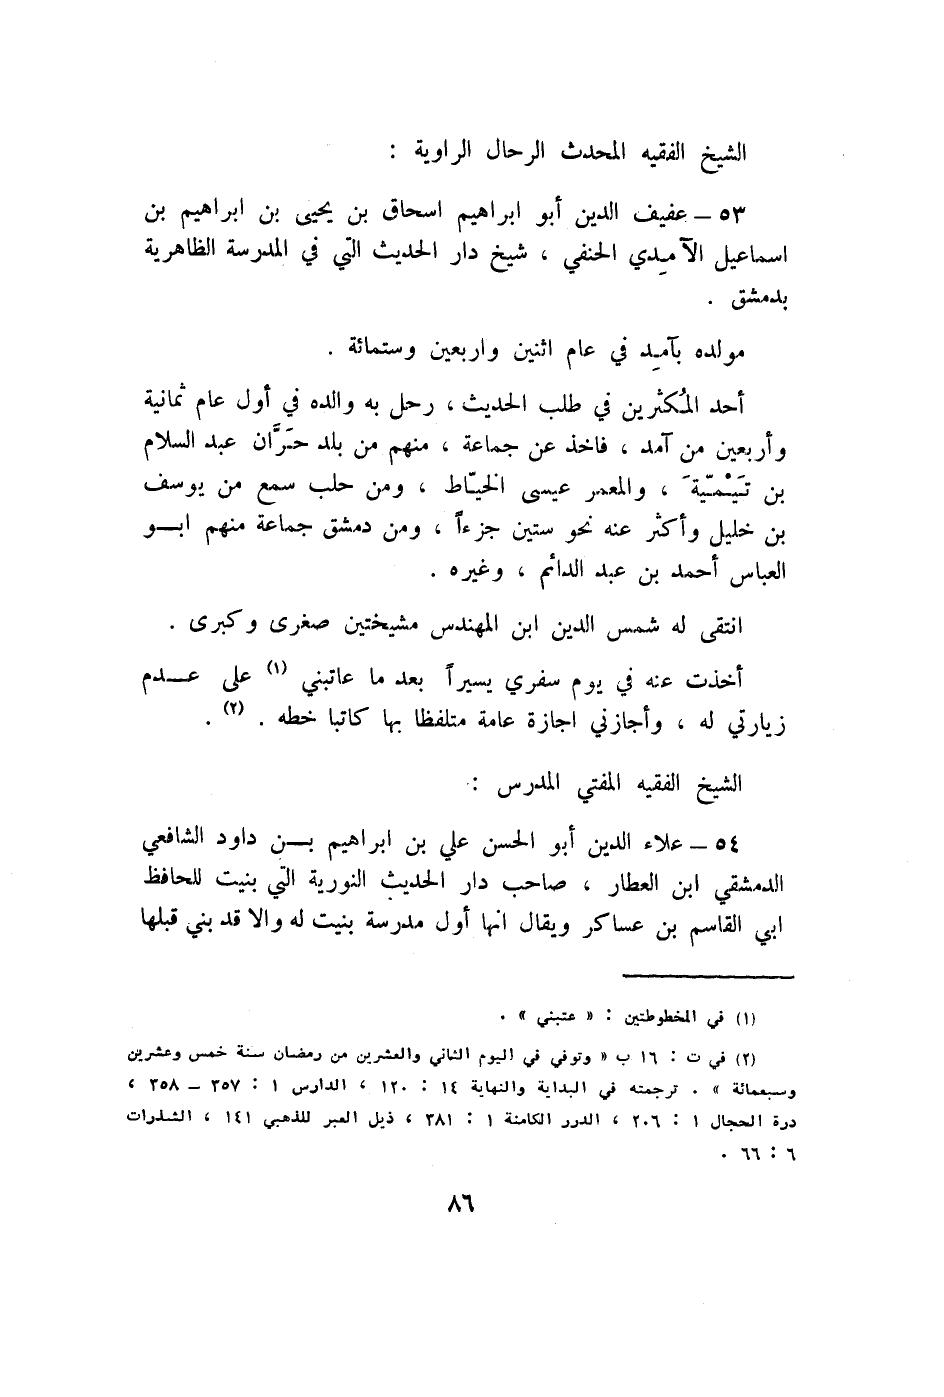 الشيخ الفقيه المحدث الرحال الراوية :
٥٣ – عفيف الدين أبو ابراهيم اسحاق بن يحيى بن ابراهيم بن
اسماعيل الآمِدي الحنفي ، شيخ دار الحديث التي في المدرسة الظاهرية
بدمشق .
مولده بآمِد في عام اثنين واربعين وستمائة .
أحد المُكثرين في طلب الحديث ، رحل به والده في أول عام ثمانية
وأربعين من آمد ، فاخذ عن جماعة ، منهم من بلد حَرَّان عبد السلام
بن تَيْمِيّةَ ، والمعمر عيسى الخيّاط ، ومن حلب سمع من يوسف
بن خليل وأكثر عنه نحو ستين جزءاً ، ومن دمشق جماعة منهم ابـو
العباس أحمد بن عبد الدائم ، وغيره .
انتقى له شمس الدين ابن المهندس مشيختين صغرى وكبرى .
أخذت عنه في يوم سفري يسيراً بعد ما عاتبني (١) على عـدم
زيارتي له ، وأجازني اجازة عامة متلفظا بها كاتبا خطه . (٢) .
الشيخ الفقيه المفتي المدرس :
٥٤ – علاء الدين أبو الحسن علي بن ابراهيم بـن داود الشافعي
الدمشقي ابن العطار ، صاحب دار الحديث النورية التي بنيت للحافظ
ابي القاسم بن عساكر ويقال انها أول مدرسة بنيت له والا قد بني قبلها
(١) في المخطوطتين : « عتبني » .
(٢) في ت : ١٦ ب « وتوفي في اليوم الثاني والعشرين من رمضان سنة خمس وعشرين
وسبعمائة » . ترجمته في البداية والنهاية ١٤ : ١٢٠ ، الدارس ١ : ٣٥٧ – ٣٥٨ ،
درة الحجال ١ : ٢٠٦ ، الدرر الكامنة ١ : ٣٨١ ، ذيل العبر للذهبي ١٤١ ، الشذرات
٦ : ٦٦ .
٨٦